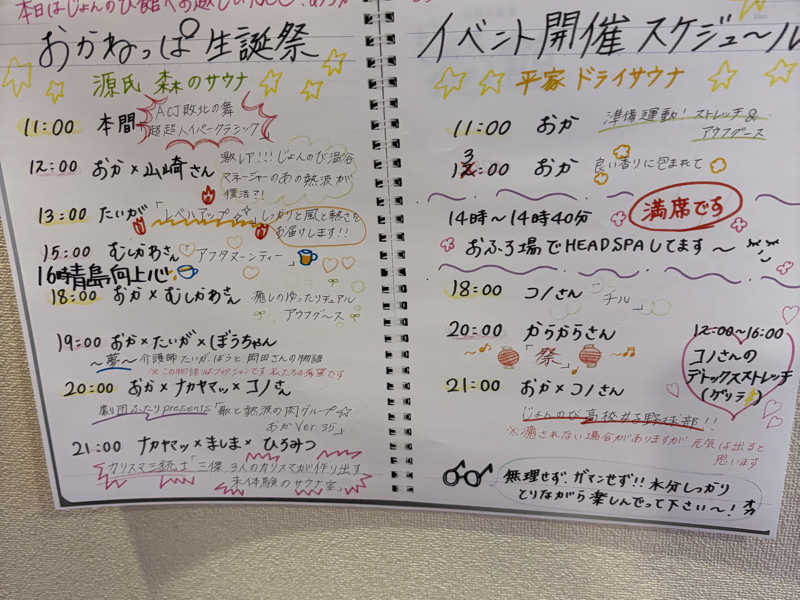 本日はじょんのび館へお越しいただき、ありが
おかねっぱ生誕祭
源氏 森のサウナ
11:00 本間
ACJ敗北の舞
超超ハイパークラシック
12:00 おか×山崎さん
激レア!!!じょんのび湯治
マネージャーのあの熱波が
復活?!
13:00 たいが
「レベルアップ☆☆」しっかりと風と熱さを
お届けします!!
15:00 むしかわさん
「アフタヌーンティー」
16時青島向上心
18:00 おか×むしかわさん
癒しのゆったりチュアル
アウフグース
19:00 おか×たいが×ぼうちゃん
〜夢〜 介護師たいが、ぼうと岡田さんの物語
※この物語はフィクションです
20:00 おか×ナカヤマッ×コノさん
劇団ふたりpresents
おかVer.35」
21:00 ナカヤマッ×ましま×ひろみつ
カリスマ三銃士「三傑 3人のカリスマが作り出す
未体験のサウナ室」
イベント開催スケジュール
平家 ドライサウナ
11:00 おか
準備運動!ストレッチ&
アウフグース
13:00 おか
良い香りに包まれて
14時〜14時40分
満席です
おふろ場でHEADSPAしてます〜
18:00 コノさん
「チル」
20:00 からからさん
〜「祭」〜
21:00 おか×コノさん
じょんのび高校サ活野球部!!
※癒されない場合がありますが 元気は出ると
思います
12:00〜16:00
コノさんの
デトックスストレッチ
(ゲッテ)
無理せず、ガマンせず!!水分しっかり
とりながら楽しんでって下さい〜!